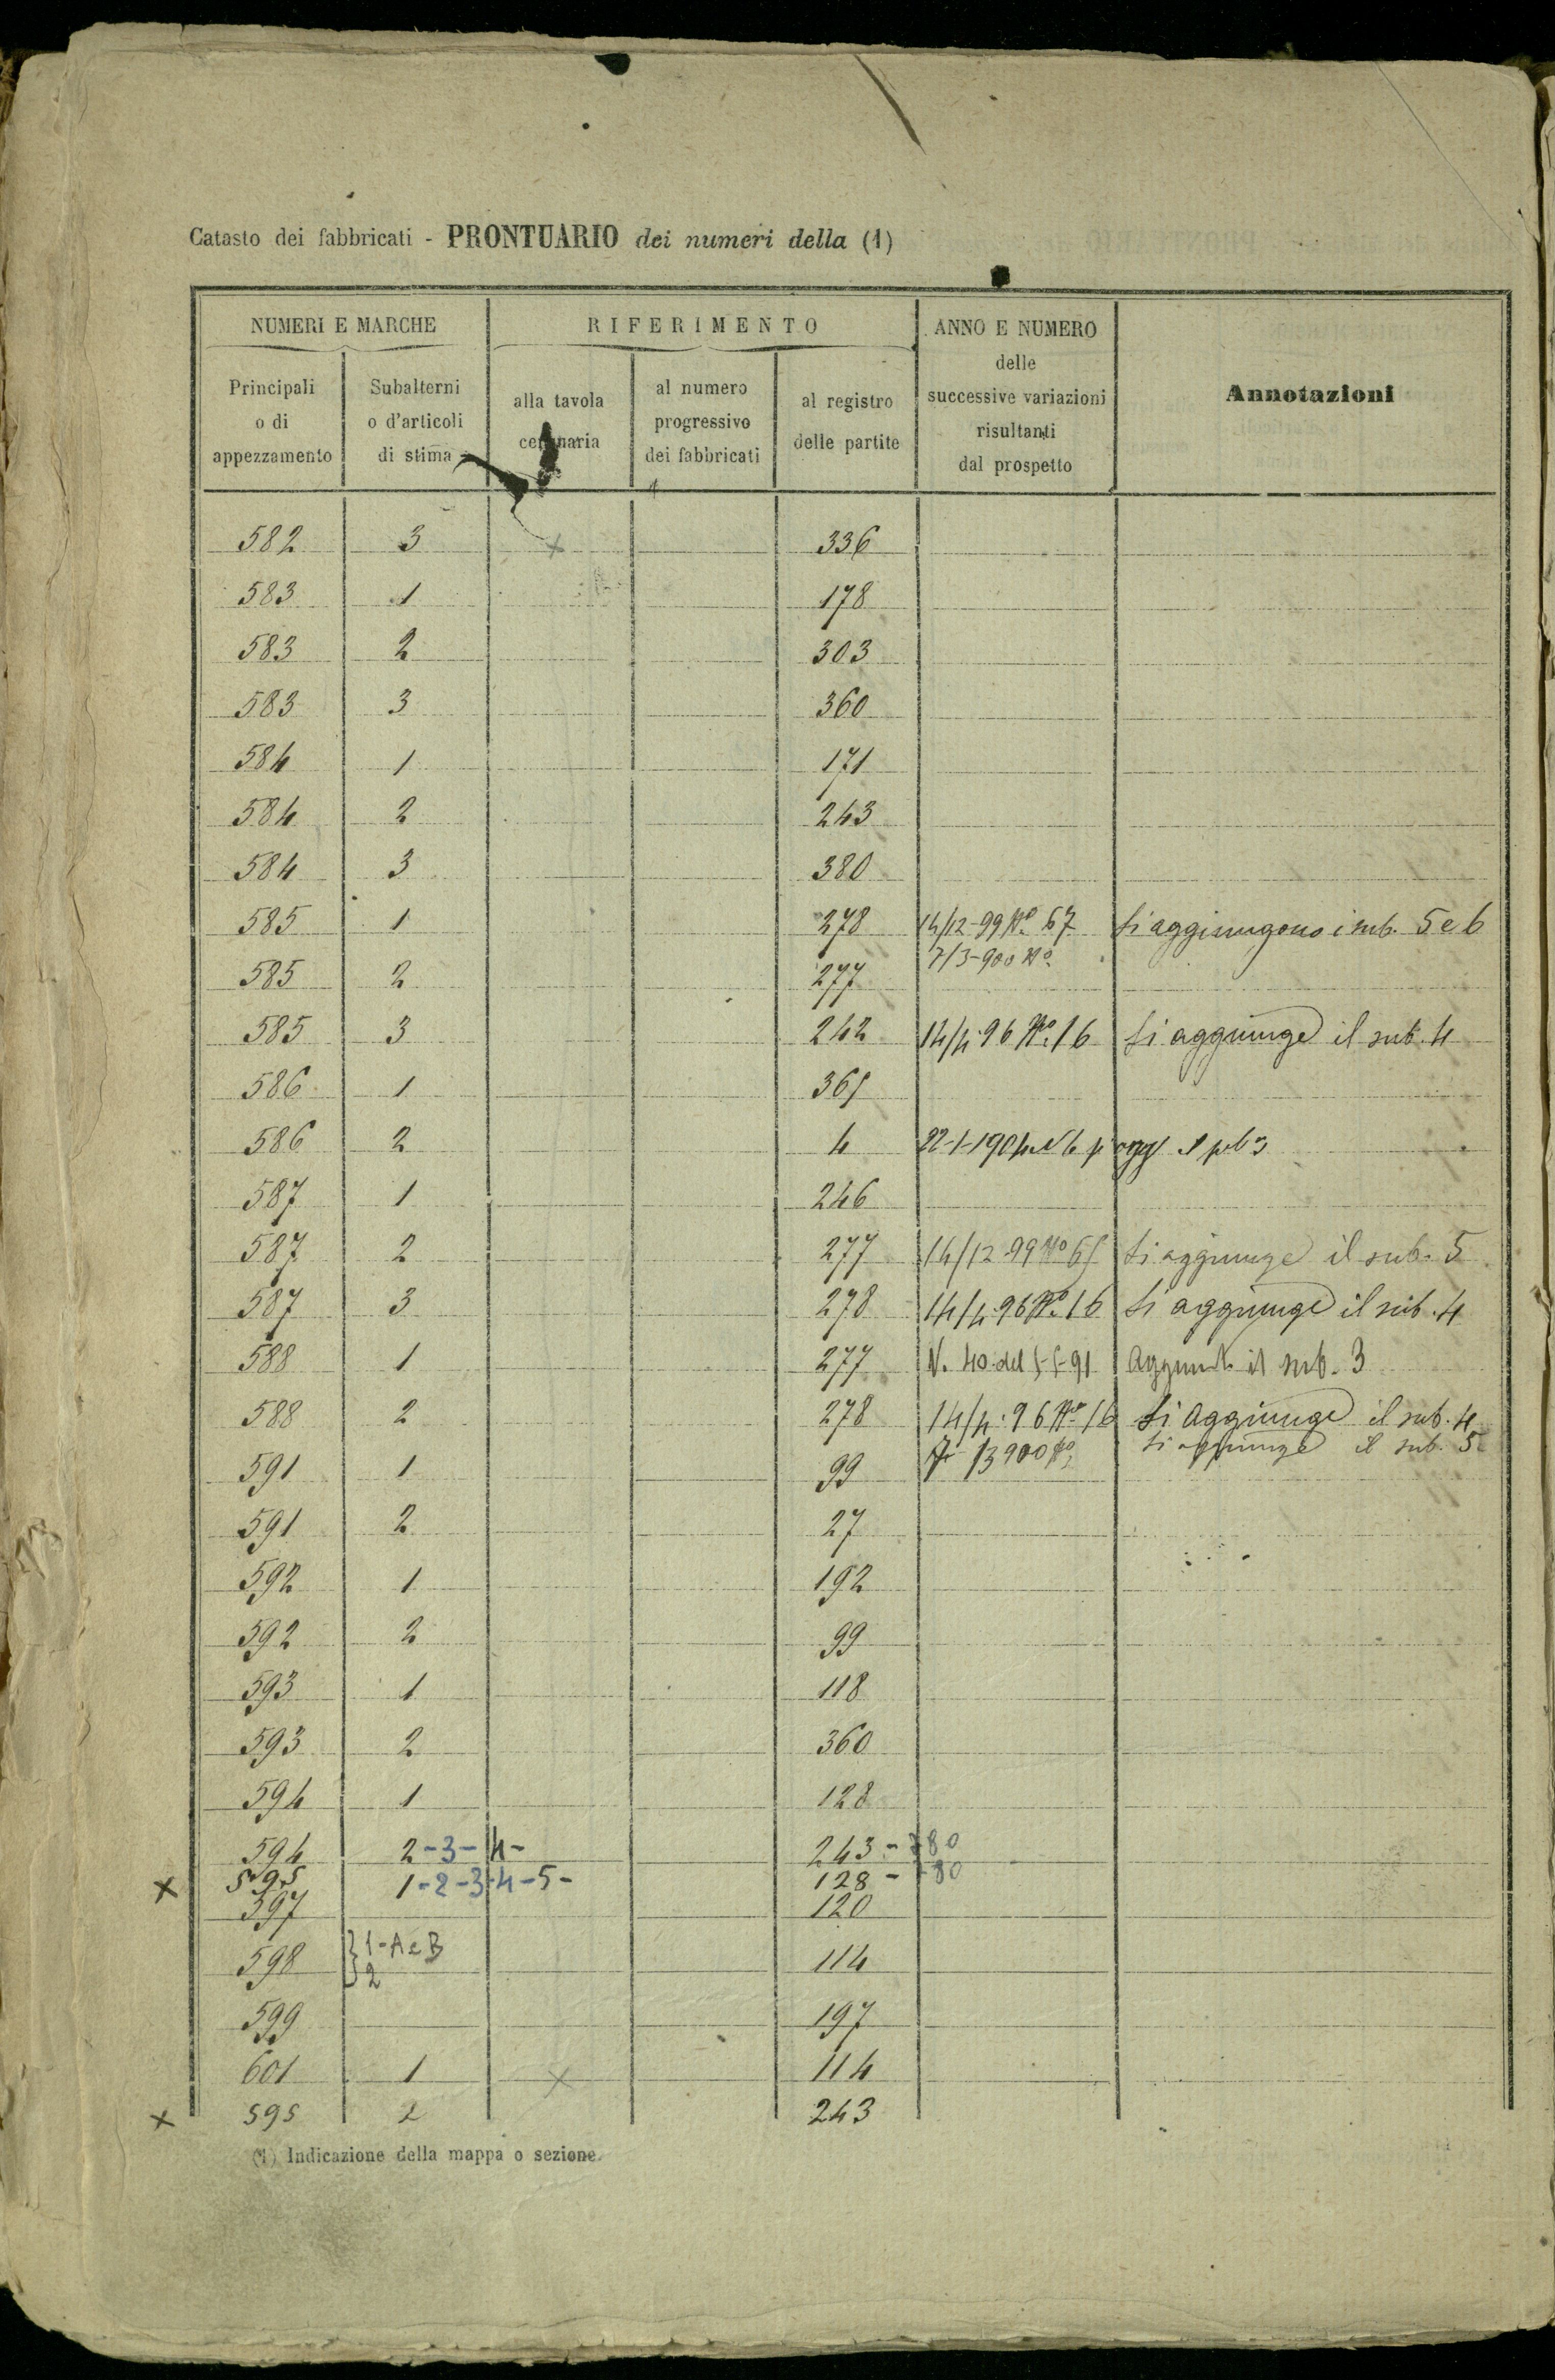 Catasto dei fabbricati - PRONTUARIO dei numeri della (1)
NUMERI E MARCHE
Principali o di appezzamento
Subalterni o d'articoli di stima
RIFERIMENTO
alla tavola
al numero progressivo dei fabbricati
al registro delle partite
ANNO E NUMERO delle successive variazioni risultanti dal prospetto
Annotazioni
582 3 x 336
583 1 178
583 2 303
583 3 360
584 1 171
584 2 243
584 3 380
585 1 278 14/12-99 No. 67 Si aggiungono i sub. 5 e 6
7/3-900 No.
585 2 277
585 3 242 14/4.96 No. 16 Si aggiunge il sub. 4
586 1 365
586 2 4 22-1-1904 il
587 1 246
587 2 277 14/12 99 No 65 Si aggiunge il sub. 5
587 3 278 14/4.96 No. 16 Si aggiunge il sub. 4
588 1 277 N. 40 del 5-5-91 il sub. 3
588 2 278 14/4.96 No. 16 Si Aggiunge il sub. 4
Si aggiunge il sub. 5
591 1 99
591 2 27
592 1 192
592 2 99
593 1 118
593 2 360
594 1 128
594 2-3-4- 243 -
x 595 1-2-3-4-5- 128 -
597 120
598 }1-A e B 114
2
599 197
601 1 x 114
x 595 2 243
(1) Indicazione della mappa o sezione.